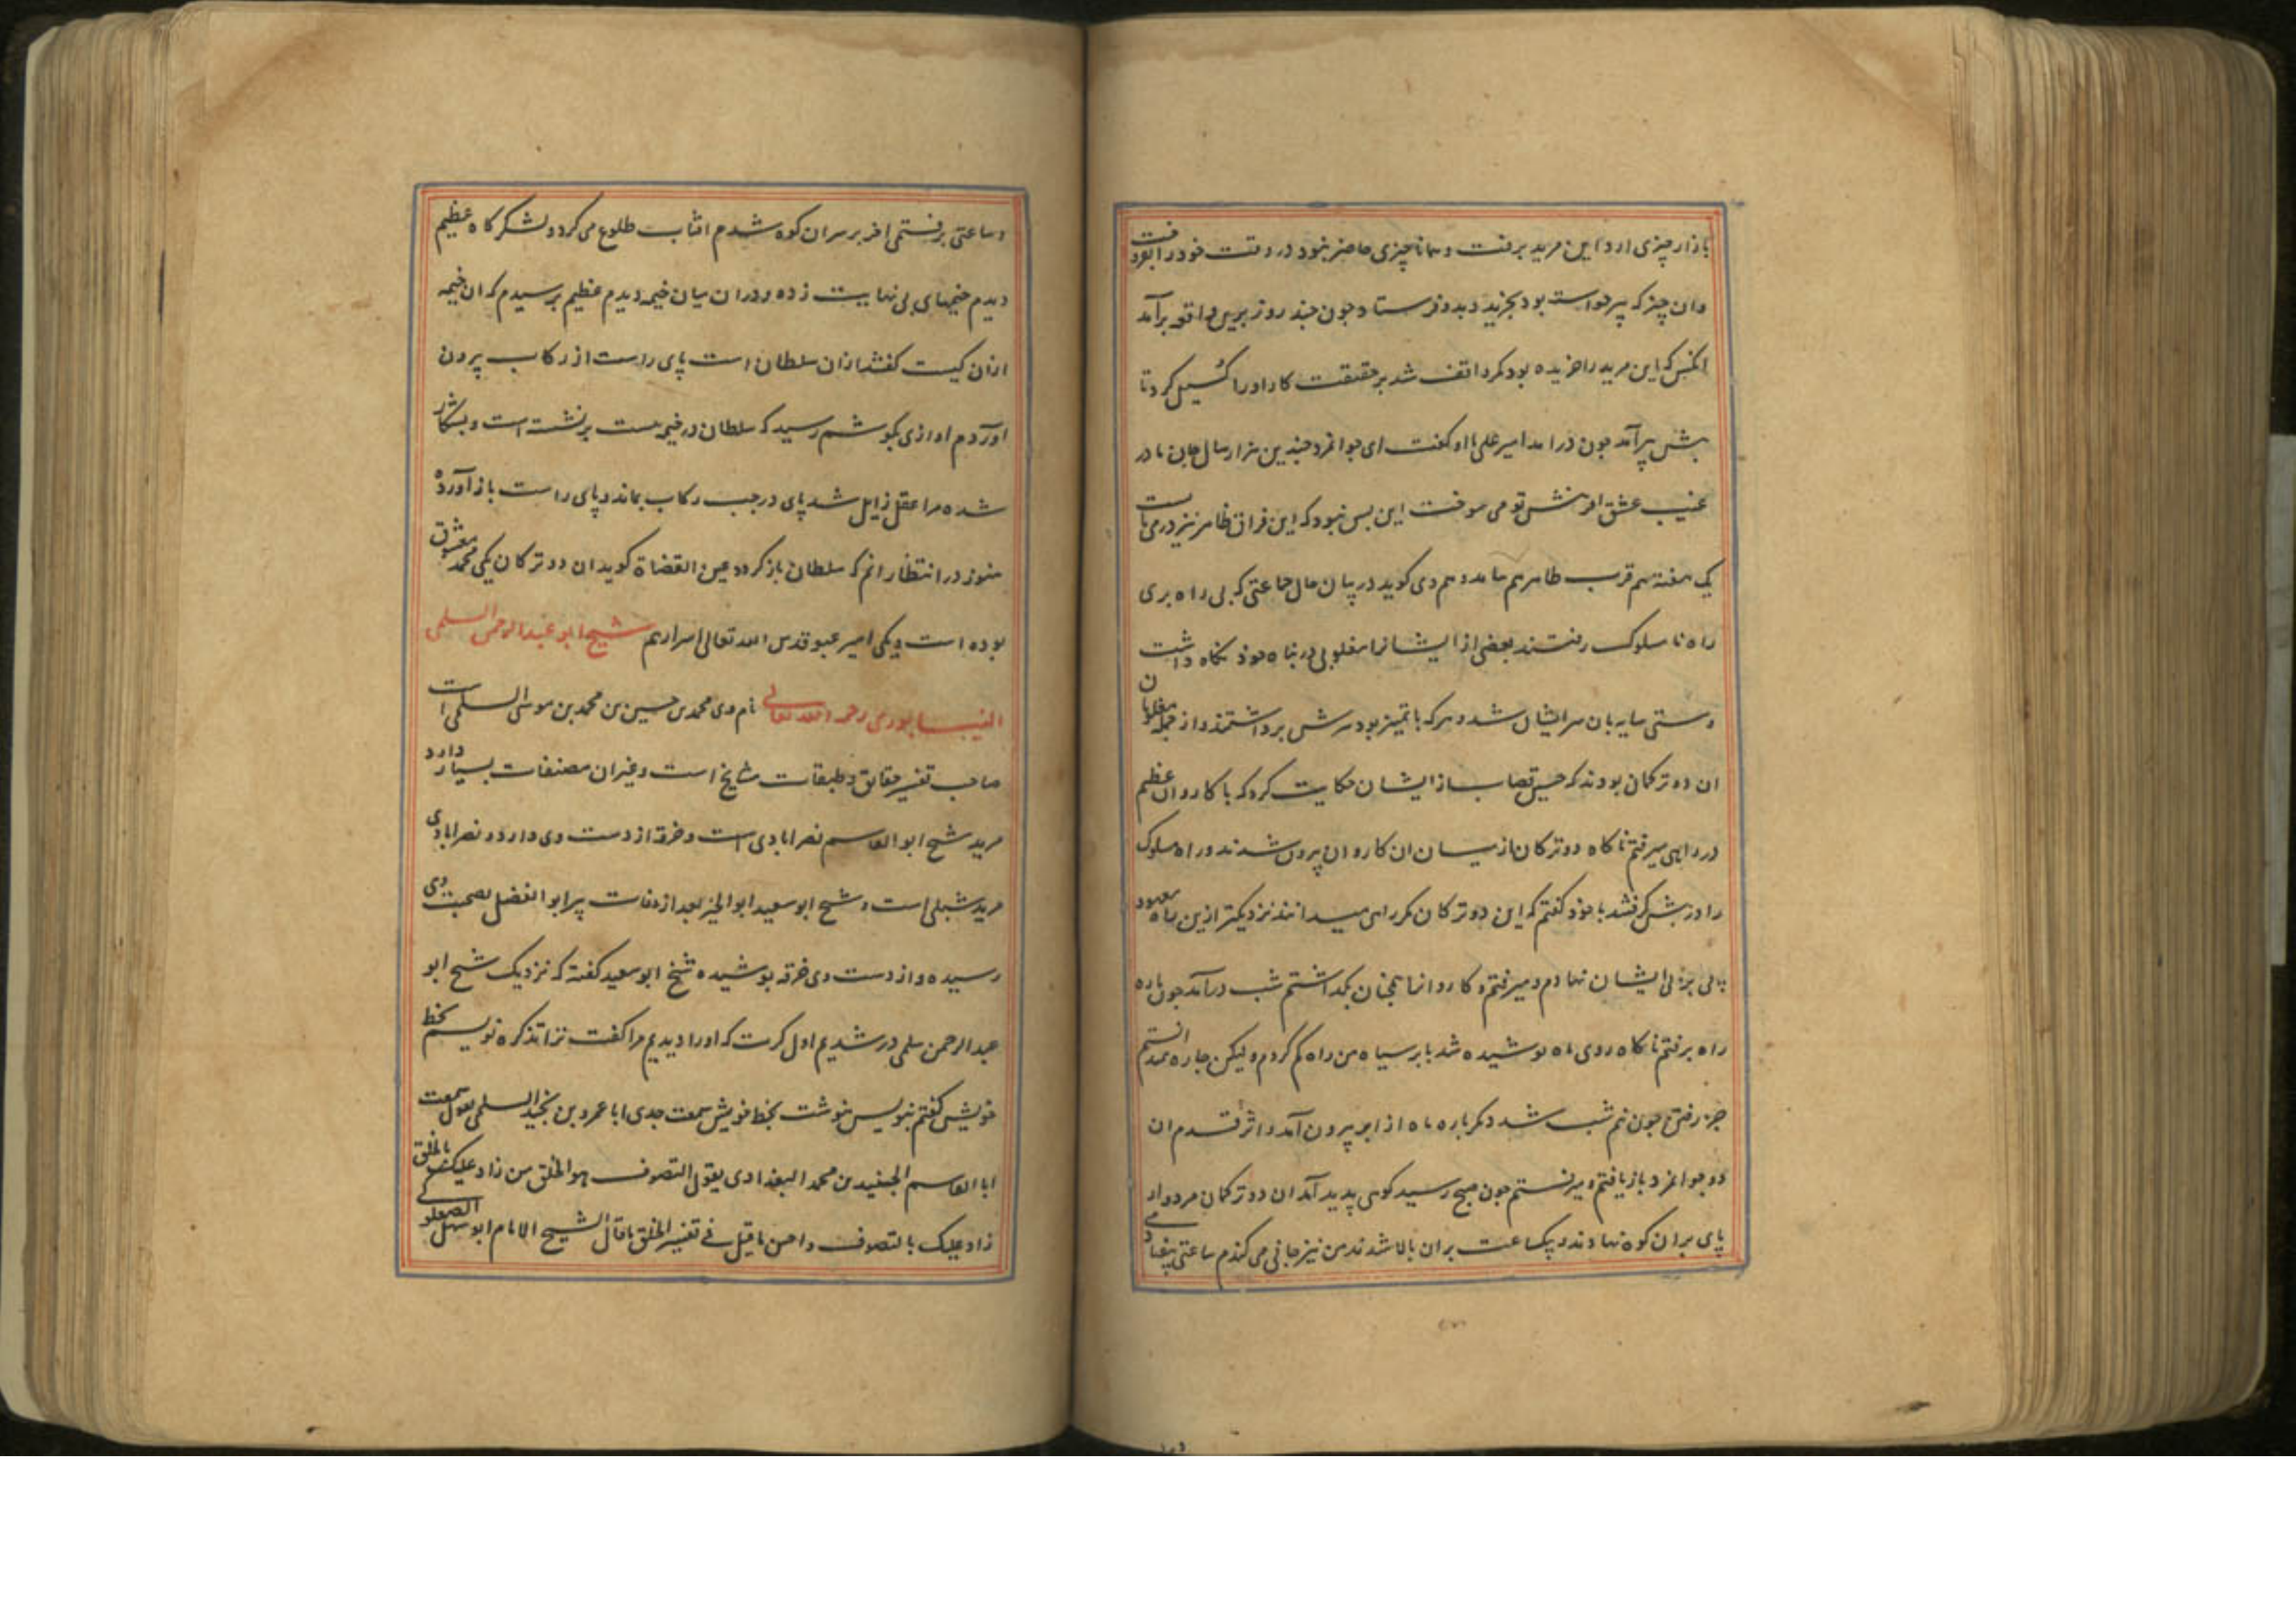 بازار چیزی ارد این مرید برفت و همانا چیزی حاضر نبود در وقت خود را بفروخت
وان چیز که پیر خواست بود بخرید و بدو فرستاد چون چند روز برین واقعه برآمد
انکس که این مرید را خریده بود مکر واقف شد بر حقیقت کار او را کسیل کرد تا
پیش پیر آمد چون درامد امیر علی با او کفت ای جوانمرد چندین هزار سال جان ما در
غیب عشق افرینش تو می سوخت این بس نبود که این فراق ظاهر نیز در می بایست
یک هفته هم قرب ظاهر هم وی کوید در بیان حال جماعتی که بی راه بری
راه نا سلوک رفتند بعضی از ایشانرا مغلوبی در پناه خود نکاه داشت
و مستی سایه بان سر ایشان شد و هرکه با تمییز بود سرش برداشتند و از جمله مغلوبان
ان دو ترکمان بودند که حسین قصاب از ایشان حکایت کرد که با کاروان عظیم
در راهی میرفتم ناکاه دو ترکان از میان ان کاروان بیرون شدند و راه سلوک
را در پیش کرفتند با خود کفتم که این دو ترکان مکر راهی میدانند نزدیکتر ازین راه معهود
پای بر پی ایشان نهادم و میرفتم و کاروانرا همچنان بکداشتم شب درآمد چون پاره
راه برفتم ناکاه روی ماه پوشیده شد بابر سیاه من راه کم کردم ولیکن چاره ندانستم
جز رفتن چون نیم شب شد دکرباره ماه از ابر بیرون آمد و اثر قدم ان
دو جوانمرد بازیافتم و میرفتم چون صبح رسید کوهی پدید آمد ان دو ترکمان مردوار
پای بر ان کوه نهادند و بیکساعت بران بالا شدند من نیز جانی می کندم ساعتی بیفتادمی
وساعتی برفتمی اخر بر سر ان کوه شدم افتاب طلوع می کرد و لشکرکاه عظیم
دیدم خیمهای بی نهایت زده و در ان میان خیمه دیدم عظیم پرسیدم که ان خیمه
ازان کیست کفتند ازان سلطان است پای راست از رکاب بیرون
اوردم اوازی بکوشم رسید که سلطان در خیمه نیست برنشسته است و بشکار
شده مرا عقل زایل شد پای در چپ رکاب بماند و پای راست باز آورده
هنوز در انتظار انم که سلطان باز کردد عین القضاة کوید ان دو ترکان یکی محمد معشوق
بوده است و یکی امیر عبو قدس الله تعالی اسرارهم شیخ ابو عبد الرحمن السلمی
النیسابوری رحمه الله تعالی نام وی محمد بن حسین بن محمد بن موسی السلمی است
صاحب تفسیر حقایق و طبقات مشایخ است و غیر ان مصنفات بسیار دارد
مرید شیخ ابو القاسم نصرابادی است و خرقه از دست وی دارد و نصرابادی
مرید شبلی است و شیخ ابو سعید ابو الخیر بعد از وفات پیر ابو الفضل بصحبت وی
رسیده و از دست وی خرقه پوشیده شیخ ابو سعید کفته که نزدیک شیخ ابو
عبد الرحمن سلمی در شدیم اول کرت که او را دیدیم مرا کفت ترا تذکره نویسم بخط
خویش کفتم بنویس بنوشت بخط خویش سمعت جدی ابا عمرو بن نجید السلمی یقول سمعت
ابا القاسم الجنید بن محمد البغدادی یقول التصوف هو الخلق من زاد علیک بالخلق
زاد علیک بالتصوف و احسن ما قیل فی تفسیر الخلق ما قال الشیخ الامام ابو سهل الصعلوکی